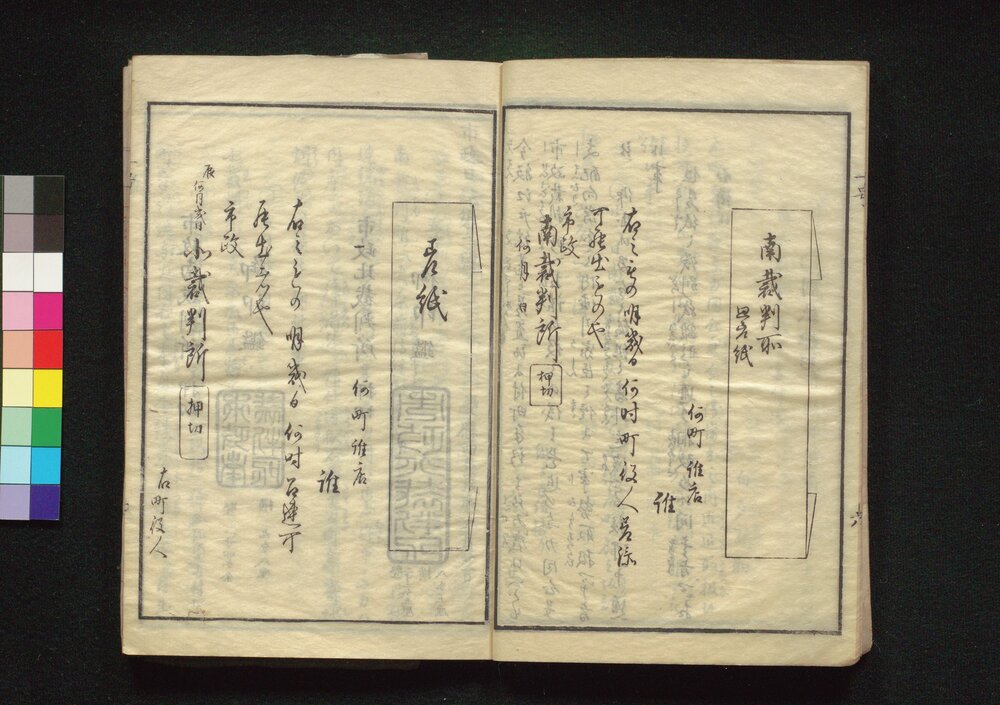 南裁判所
差紙
何町 誰店
誰
右之もの明幾日何時町役人召添
可罷出もの也
市政
何月日 南裁判所 押切
差紙
何町 誰店
誰
右之もの明幾日何時召連可
罷出もの也
市政
辰何月幾日 北裁判所 押切
右町役人